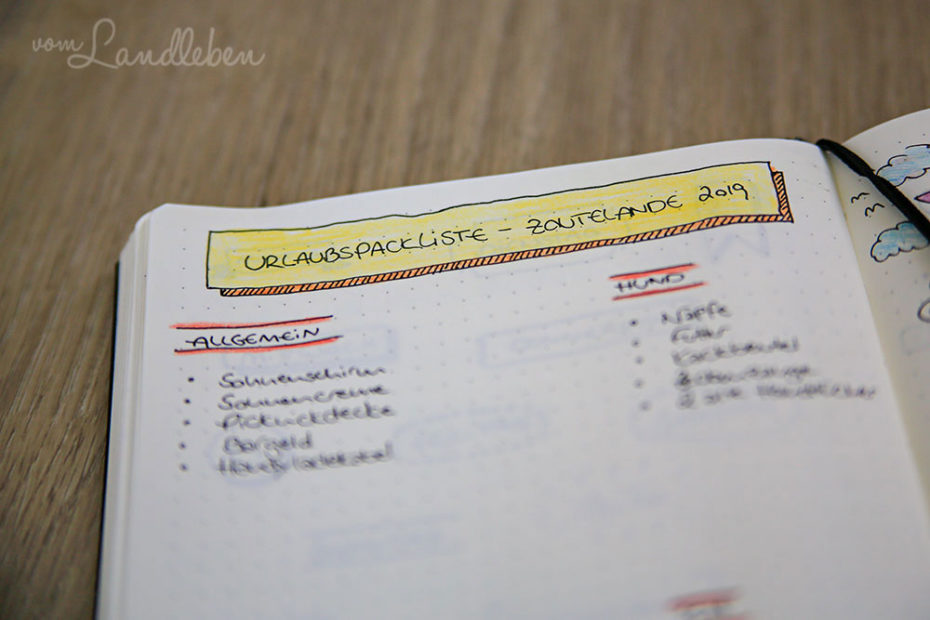 vom Landleben
URLAUBSPACKLISTE - ZOUTELANDE 2019
ALLGEMEIN
• Sonnenschirm
• Sonnencreme
• Picknickdecke
• Bargeld
• Handyladekabel
HUND
• Näpfe
• Futter
• Kackbeutel
•
•